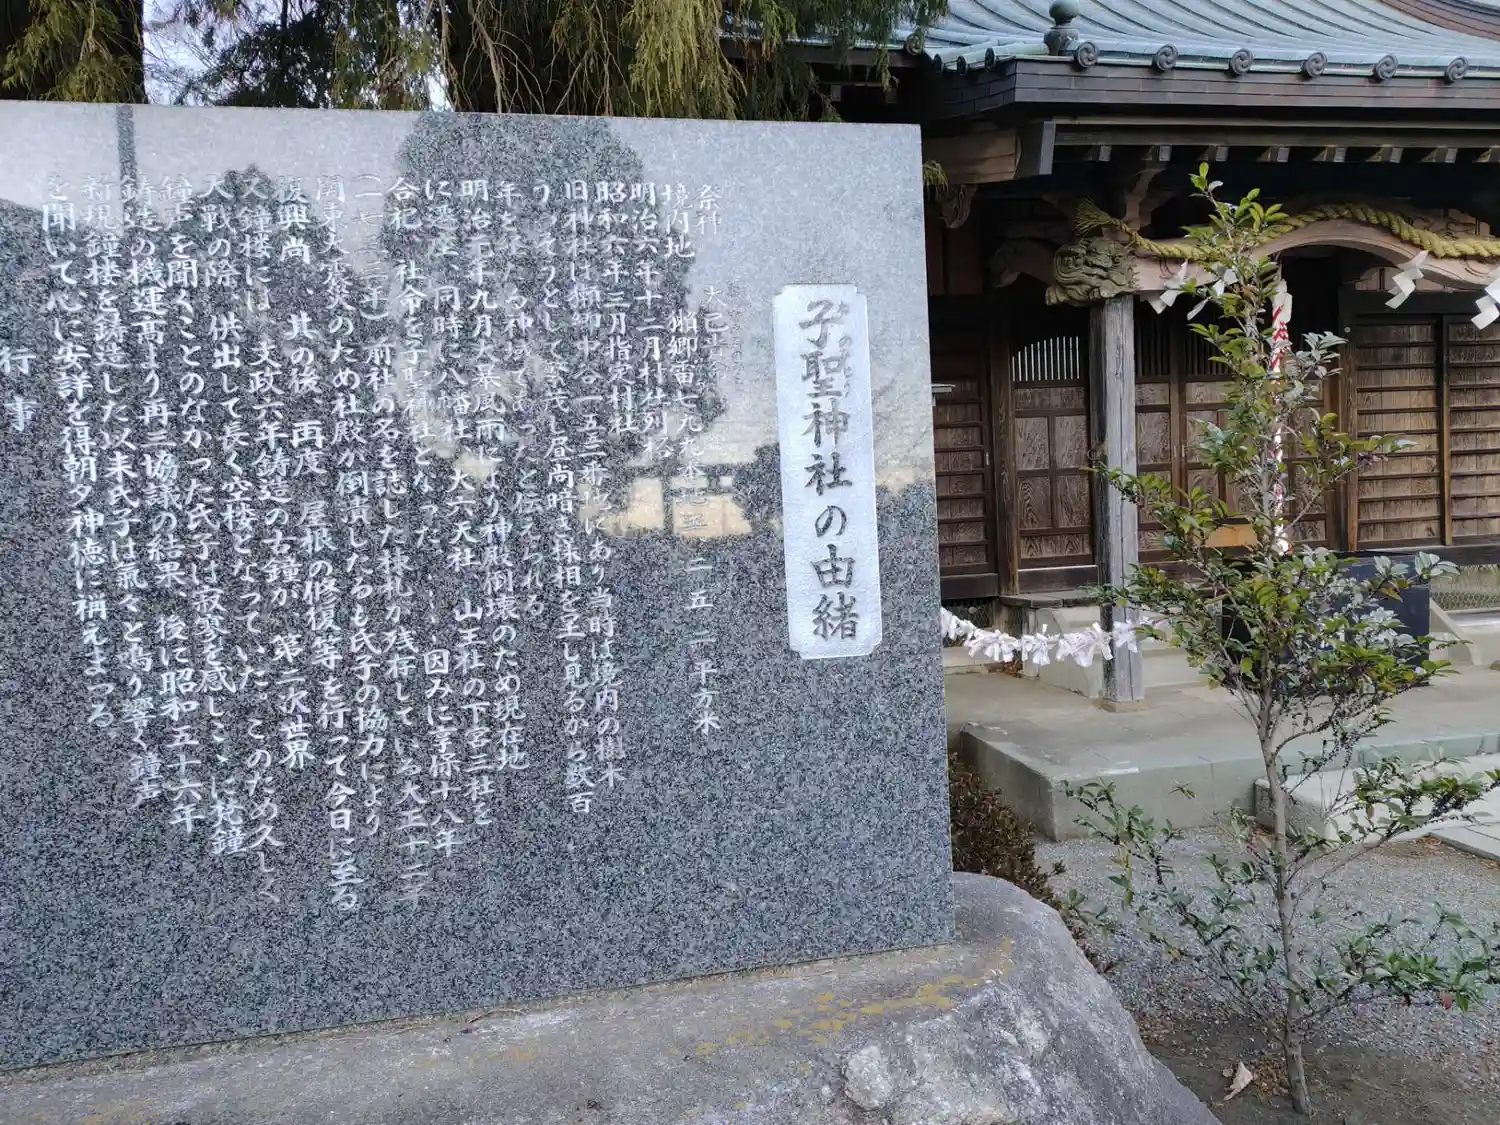 子聖神社の由緒
祭神 大己貴
境内地 飽郷雷七九九番地 五二五二平方米
明治六年十二月村社列
昭和六年三月指定村社
旧神社は 中 一五三番地にあり当時は境内の樹木
うっそうとして 茂し昼尚暗き様相を呈し見るから数百
年をへたる神域であったと伝えられる
明治三年九月大暴風雨により神殿倒壊のため現在地
に遷座、同時に八幡社、大六天社、山王社の下宮三社を
合祀、社命を子聖神社となった……因みに享保十八年
(一七三三年)前社の名を誌した棟札が残存している大正十二年
関東大震災のため社殿が倒潰したるも氏子の協力により
復興尚、其の後、再度、屋根の修復等を行って今日に至る
又鐘楼には、文政六年鋳造の古鐘が、第二次世界
大戦の際、供出して長く空楼となっていたこのため久しく
鐘声を聞くことのなかった氏子は寂寥を感じ、、に梵鐘
鋳造の機運高より再三協議の結果、後に昭和五十六年
新現鐘楼を鋳造した以来氏子は氣々と鳴り響く鐘声
を聞いて心に安詳を得朝夕神徳に稱えまつる
行事